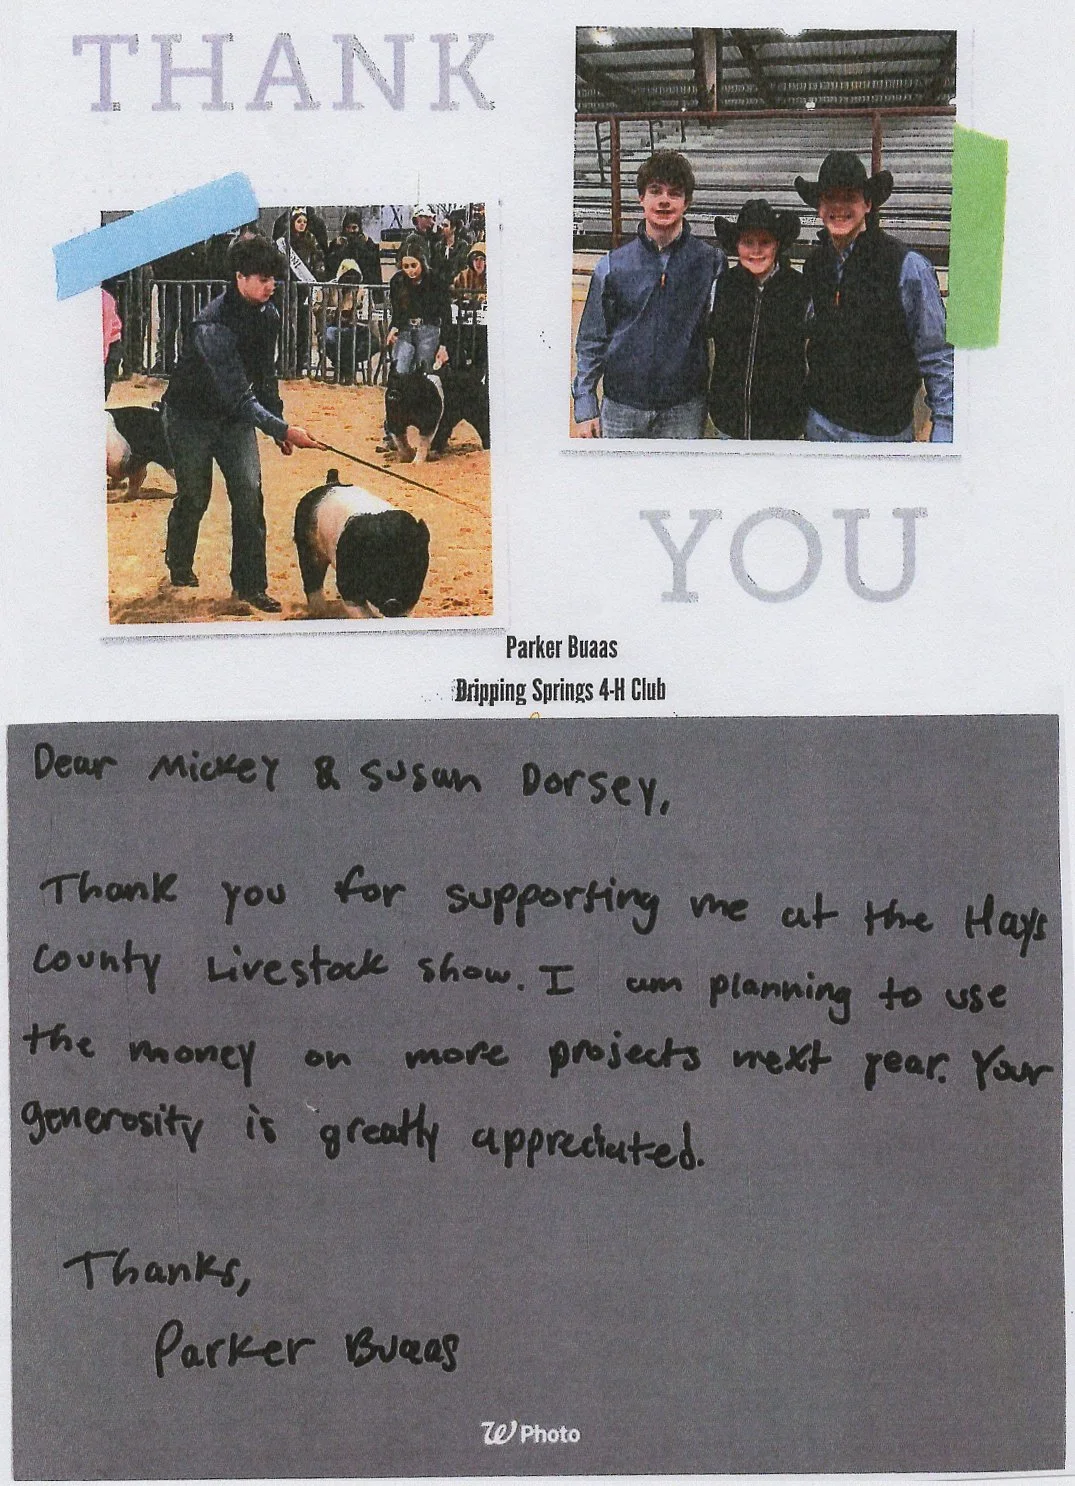 THANK
YOU
Parker Buaas
Dripping Springs 4-H Club
Dear Mickey & Susan Dorsey,
Thank you for supporting me at the Hays
County Livestock show. I am planning to use
the money on more projects next year. Your
generosity is greatly appreciated.
Thanks,
Parker Buaas
W Photo